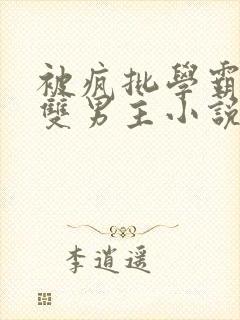 被瘋批學霸
雙男主小說
李逍遥